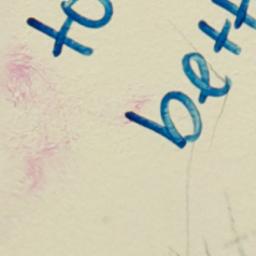 to
bett